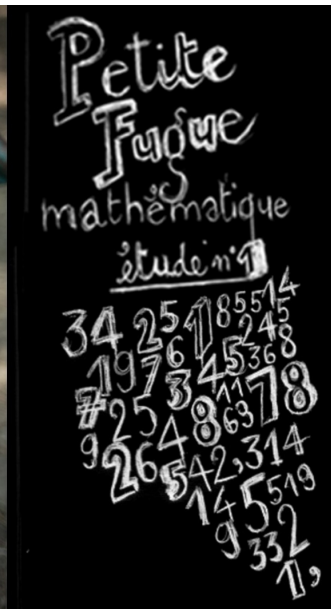 Petite
Fugue
mathématique
étude n°1
34 25 1 85514
19 76 3 45 245
368
#25 4 8 11 78
9 26 5 42,314
63
14 5 519
9 332
1,